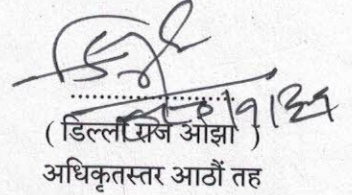 ( डिल्ली राज ओझा )
अधिकृतस्तर आठौं तह